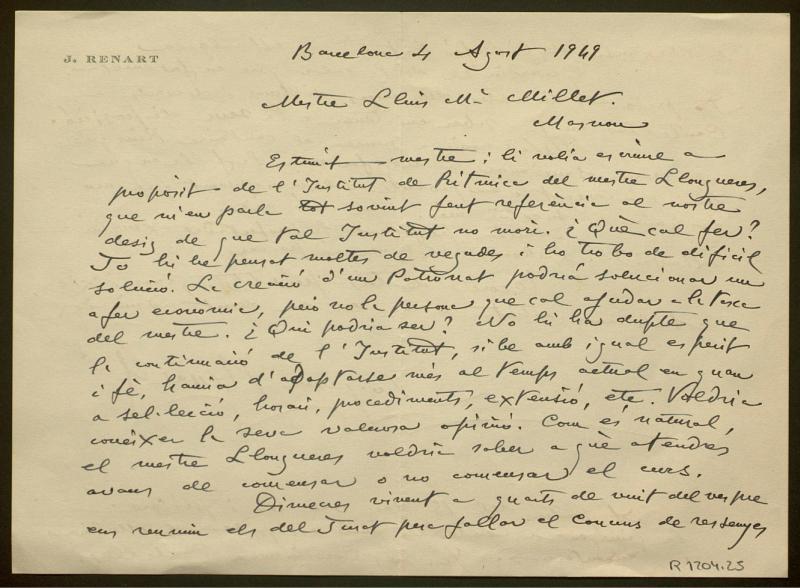 J. RENART
Barcelona 4 Agost 1949
Mestre Lluis Mª Millet.
Masnou
Estimat mestre: li volia escriure a
propòsit de l'Institut de Ritmica del mestre Llongueres,
que m'en parla tot sovint fent referència al nostre
desig de que tal Institut no mori. ¿Què cal fer?
Jo hi he pensat moltes de vegades i ho trobo de dificil
solució. La creació d'un Patronat podria solucionar un
afer econòmic, però no la persona que cal ajudar a la tasca
del mestre. ¿Qui podria ser? No hi ha dupte que
la continuació de l'Institut, si bé amb igual esperit
i fè, hauria d'adaptarse més al temps actual en quan
a sel·lecció, horari, procediments, extensió, etc. Valdria
conèixer la seva valuosa opinió. Com es natural,
el mestre Llongueres voldria saber a què atendres
avans de comensar o no comensar el curs.
Dimecres vivent a quarts de vuit del vespre
ens reunim els del Jurat per a fallar el Concurs de ressenyes
R 1204.25